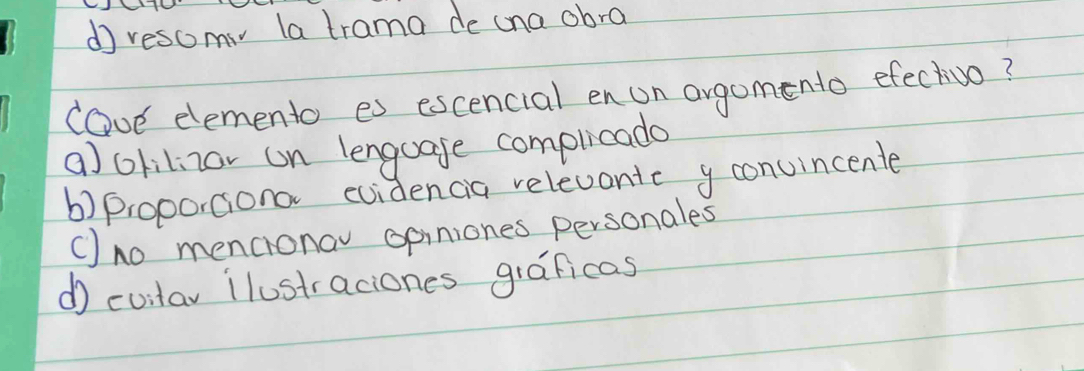 d) resumir la trama de una obra
¿Qué elemento es escencial en un argumento efectivo?
a) Utilizar un lenguaje complicado
b) Proporciona evidencia relevante y convincente
c) no mencionar opiniones personales
d) evitar ilustraciones gráficas